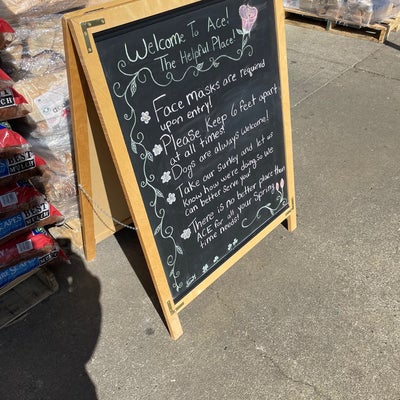 Welcome To Ace!
The Helpful Place!
Face masks are required
upon entry!
Please Keep 6 feet apart
at all times!
Dogs are always welcome!
Take our survey and let us
know how were doing so we
can better serve you!
There is no better place than
ACE for all your Spring
time needs!
BEST
MULCH
BEST
BEST